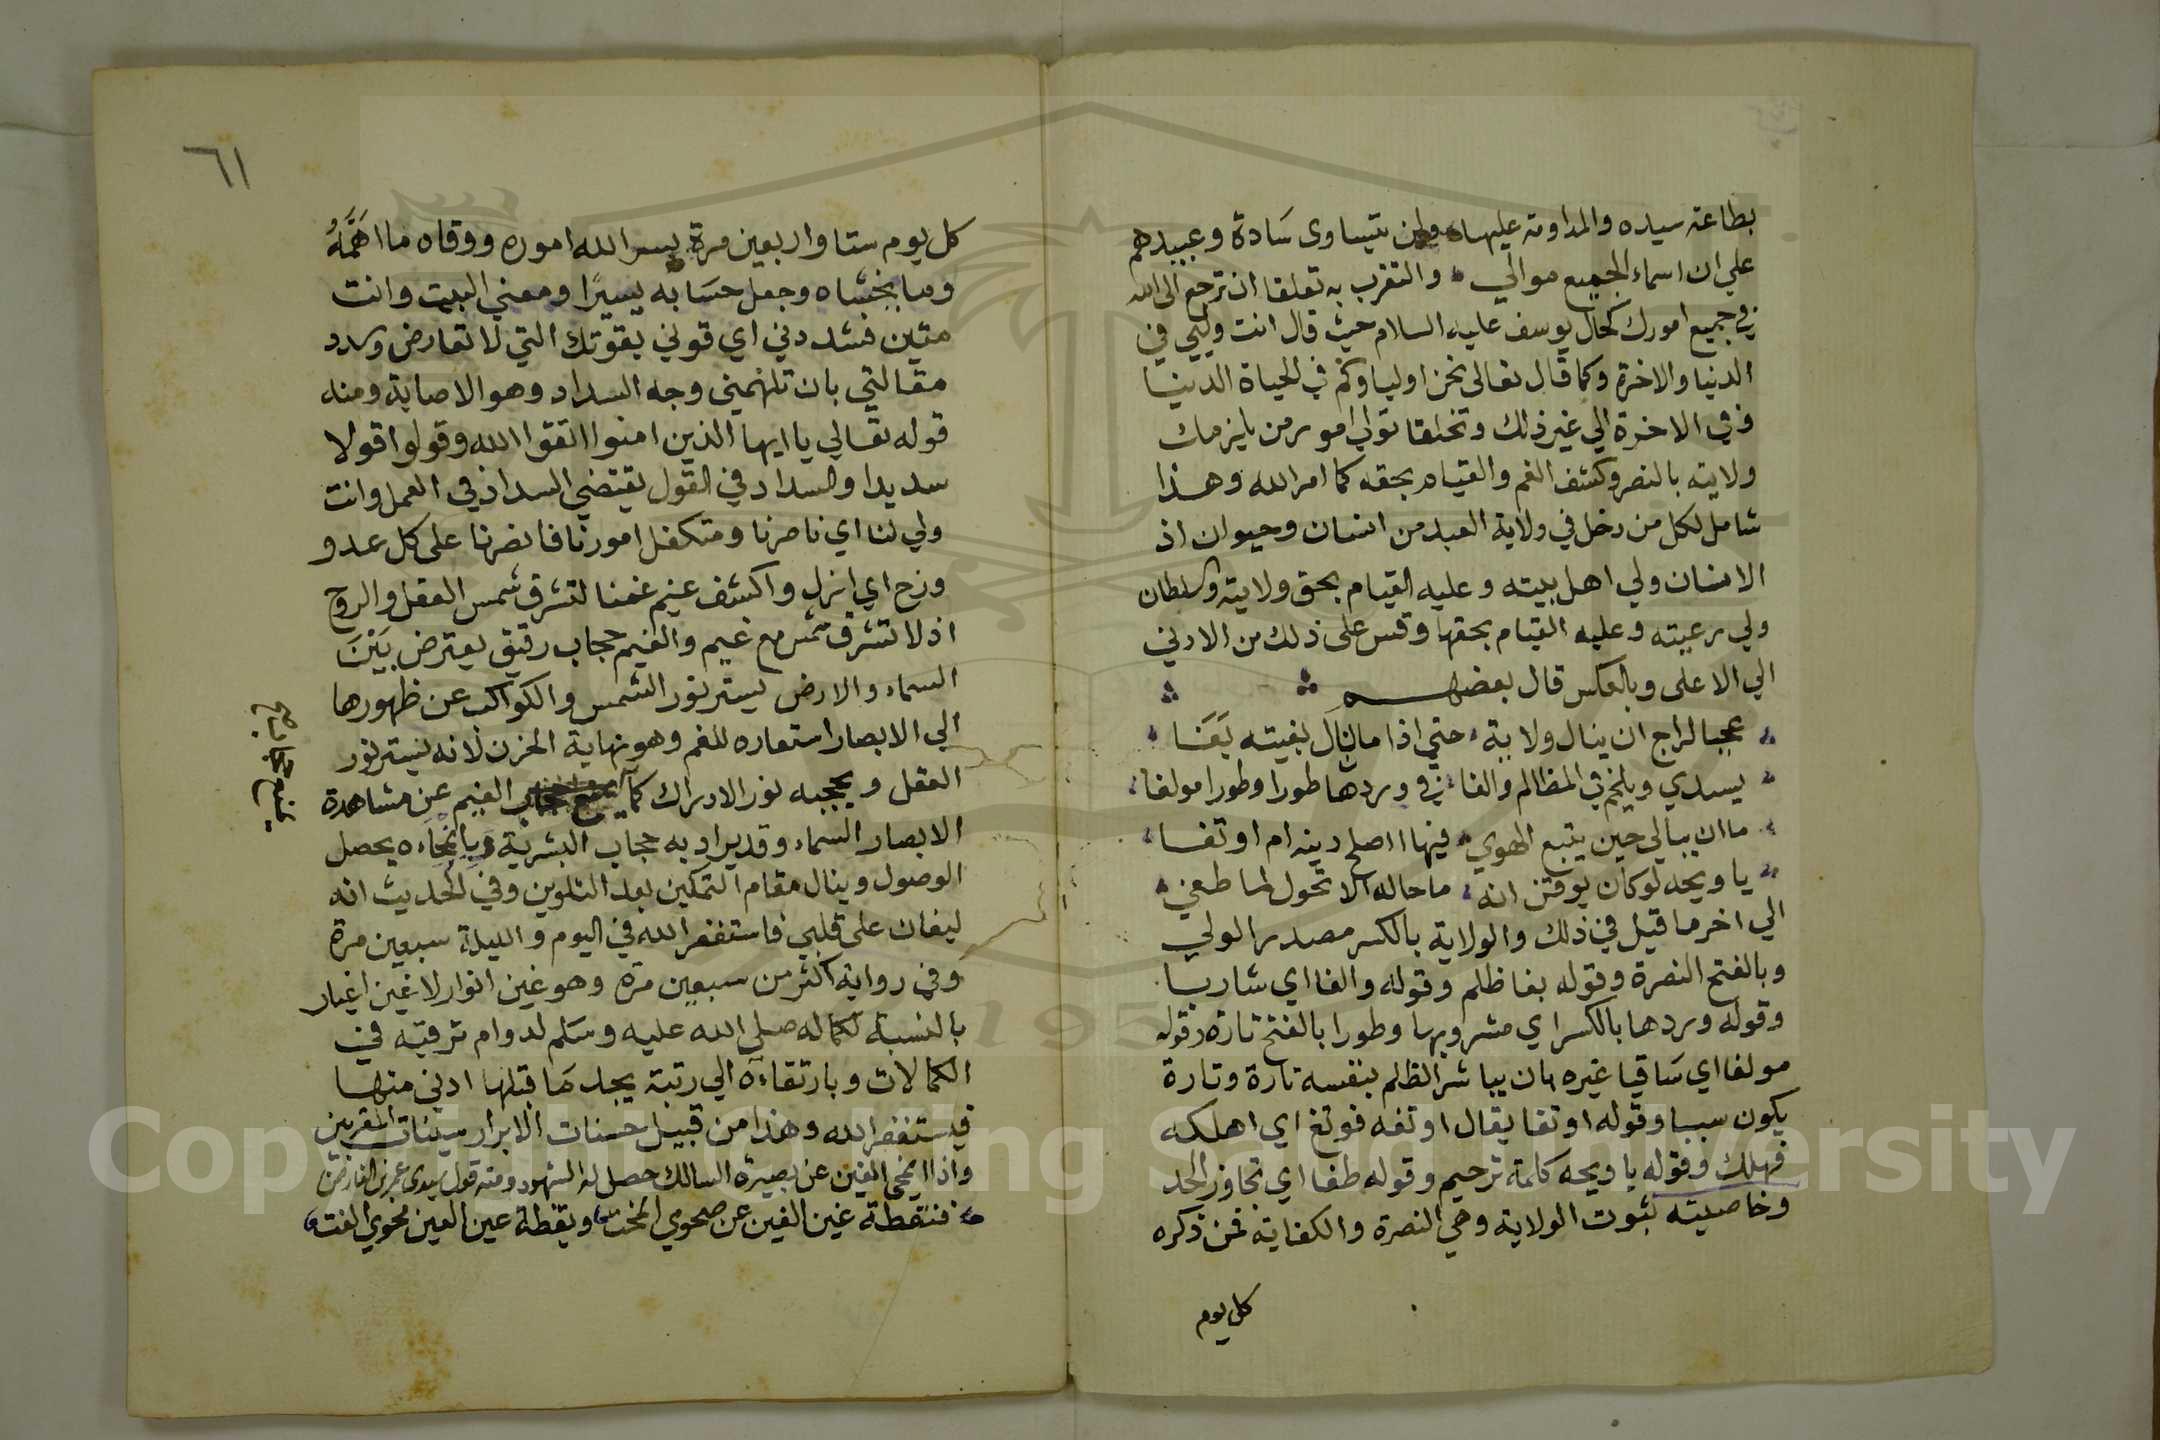 بطاعة سيده والمداومة عليها ولن يتساوى سادة وعبيدهم
علي ان اسماء الجميع موالي والتقرب به تعلقا ان ترجع الى الله
في جميع امورك كحال يوسف عليه السلام حيث قال انت وليي في
الدنيا والاخرة وكما قال تعالى نحن اولياوكم في الحياة الدنيا
وفي الاخرة الي غير ذلك وتخلقا تولي امور من يلزمك
ولايته بالنصر وكشف الغم والقيام بحقه كما امر الله وهذا
شامل لكل من دخل في ولاية العبد من انسان وحيوان اذ
الانسان ولي اهل بيته وعليه القيام بحق ولايته والسلطان
ولي رعيته وعليه القيام بحقها وقس على ذلك من الادني
الي الاعلى وبالعكس قال بعضهم
عجبا لراج ان ينال ولاية حتي اذا ما نال بغيته بَغَا
يسدي ويلحم في المظالم والغا في وردها طورا وطورا مولغا
ما ان يبالي حين يتبع الهوي فيها ااصلح دينه ام اوتغا
يا ويحه لو كان يوقن انه ما حاله الا تحول لما طغي
الي اخر ما قيل في ذلك والولاية بالكسر مصدر الولي
وبالفتح النصرة وقوله بغا ظلم وقوله والغا اي شاربا
وقوله وردها بالكسر اي مشروبها وطورا بالفتح تارة وقوله
مولغا اي ساقيا غيره بان يباشر الظلم بنفسه تارة وتارة
يكون سببا وقوله اوتغا يقال اوتغه فوتغ اي اهلكه
فهلك وقوله يا ويحه كلمة ترحيم وقوله طغا اي تجاوز الحد
وخاصيته ثبوت الولاية وهي النصرة والكفاية فمن ذكره
كل يوم
٦١
كل يوم ستا واربعين مرة يسر الله اموره ووقاه ما اهَمَّهُ
وما يخشاه وجعل حسابه يسيرًا ومعني البيت وانت
متين فشددني اي قوني بقوتك التي لا تعارض وسدد
مقالتي بان تلهمني وجه السداد وهو الاصابة ومنه
قوله تعالي يا ايها الذين امنوا اتقوا الله وقولوا قولا
سديدا والسداد في القول يقتضي السداد في العمل وانت
ولي لنا اي ناصرنا ومتكفل امورنا فانصرنا على كل عدو
وزح اي ازل واكشف غيم غمنا لتشرق شمس العقل والروح
اذ لا تشرق شمس مع غيم والغيم حجاب رقيق يعترض بَيْنَ
السماء والارض يستر نور الشمس والكواكب عن ظهورها
الي الابصار استعاره للغم وهو نهاية الحزن لانه يستر نور
العقل ويحجبه نور الادراك كما الغيم عن مشاهدة
الابصار السماء وقد يراد به حجاب البشرية وبانمحاه يحصل
الوصول وينال مقام التمكين بعد التلوين وفي الحديث انه
ليغان على قلبي فاستغفر الله في اليوم والليلة سبعين مرة
وفي رواية اكثر من سبعين مرة وهو غين انوار لا غين اغيار
بالنسبة لكماله صلي الله عليه وسلم لدوام ترقيه في
الكمالات وبارتقاءه الي رتبة يجد ما قبلها ادني منها
فيستغفر الله وهذا من قبيل حسنات الابرار سيئات المقربين
واذا انمحى الغين عن بصيرة السالك حصل له الشهود ومنه قول سيدى عمر بن الفارض
فنقطة غين الغين عن صحوي انمحت ويقظة عين العين محوي الغت